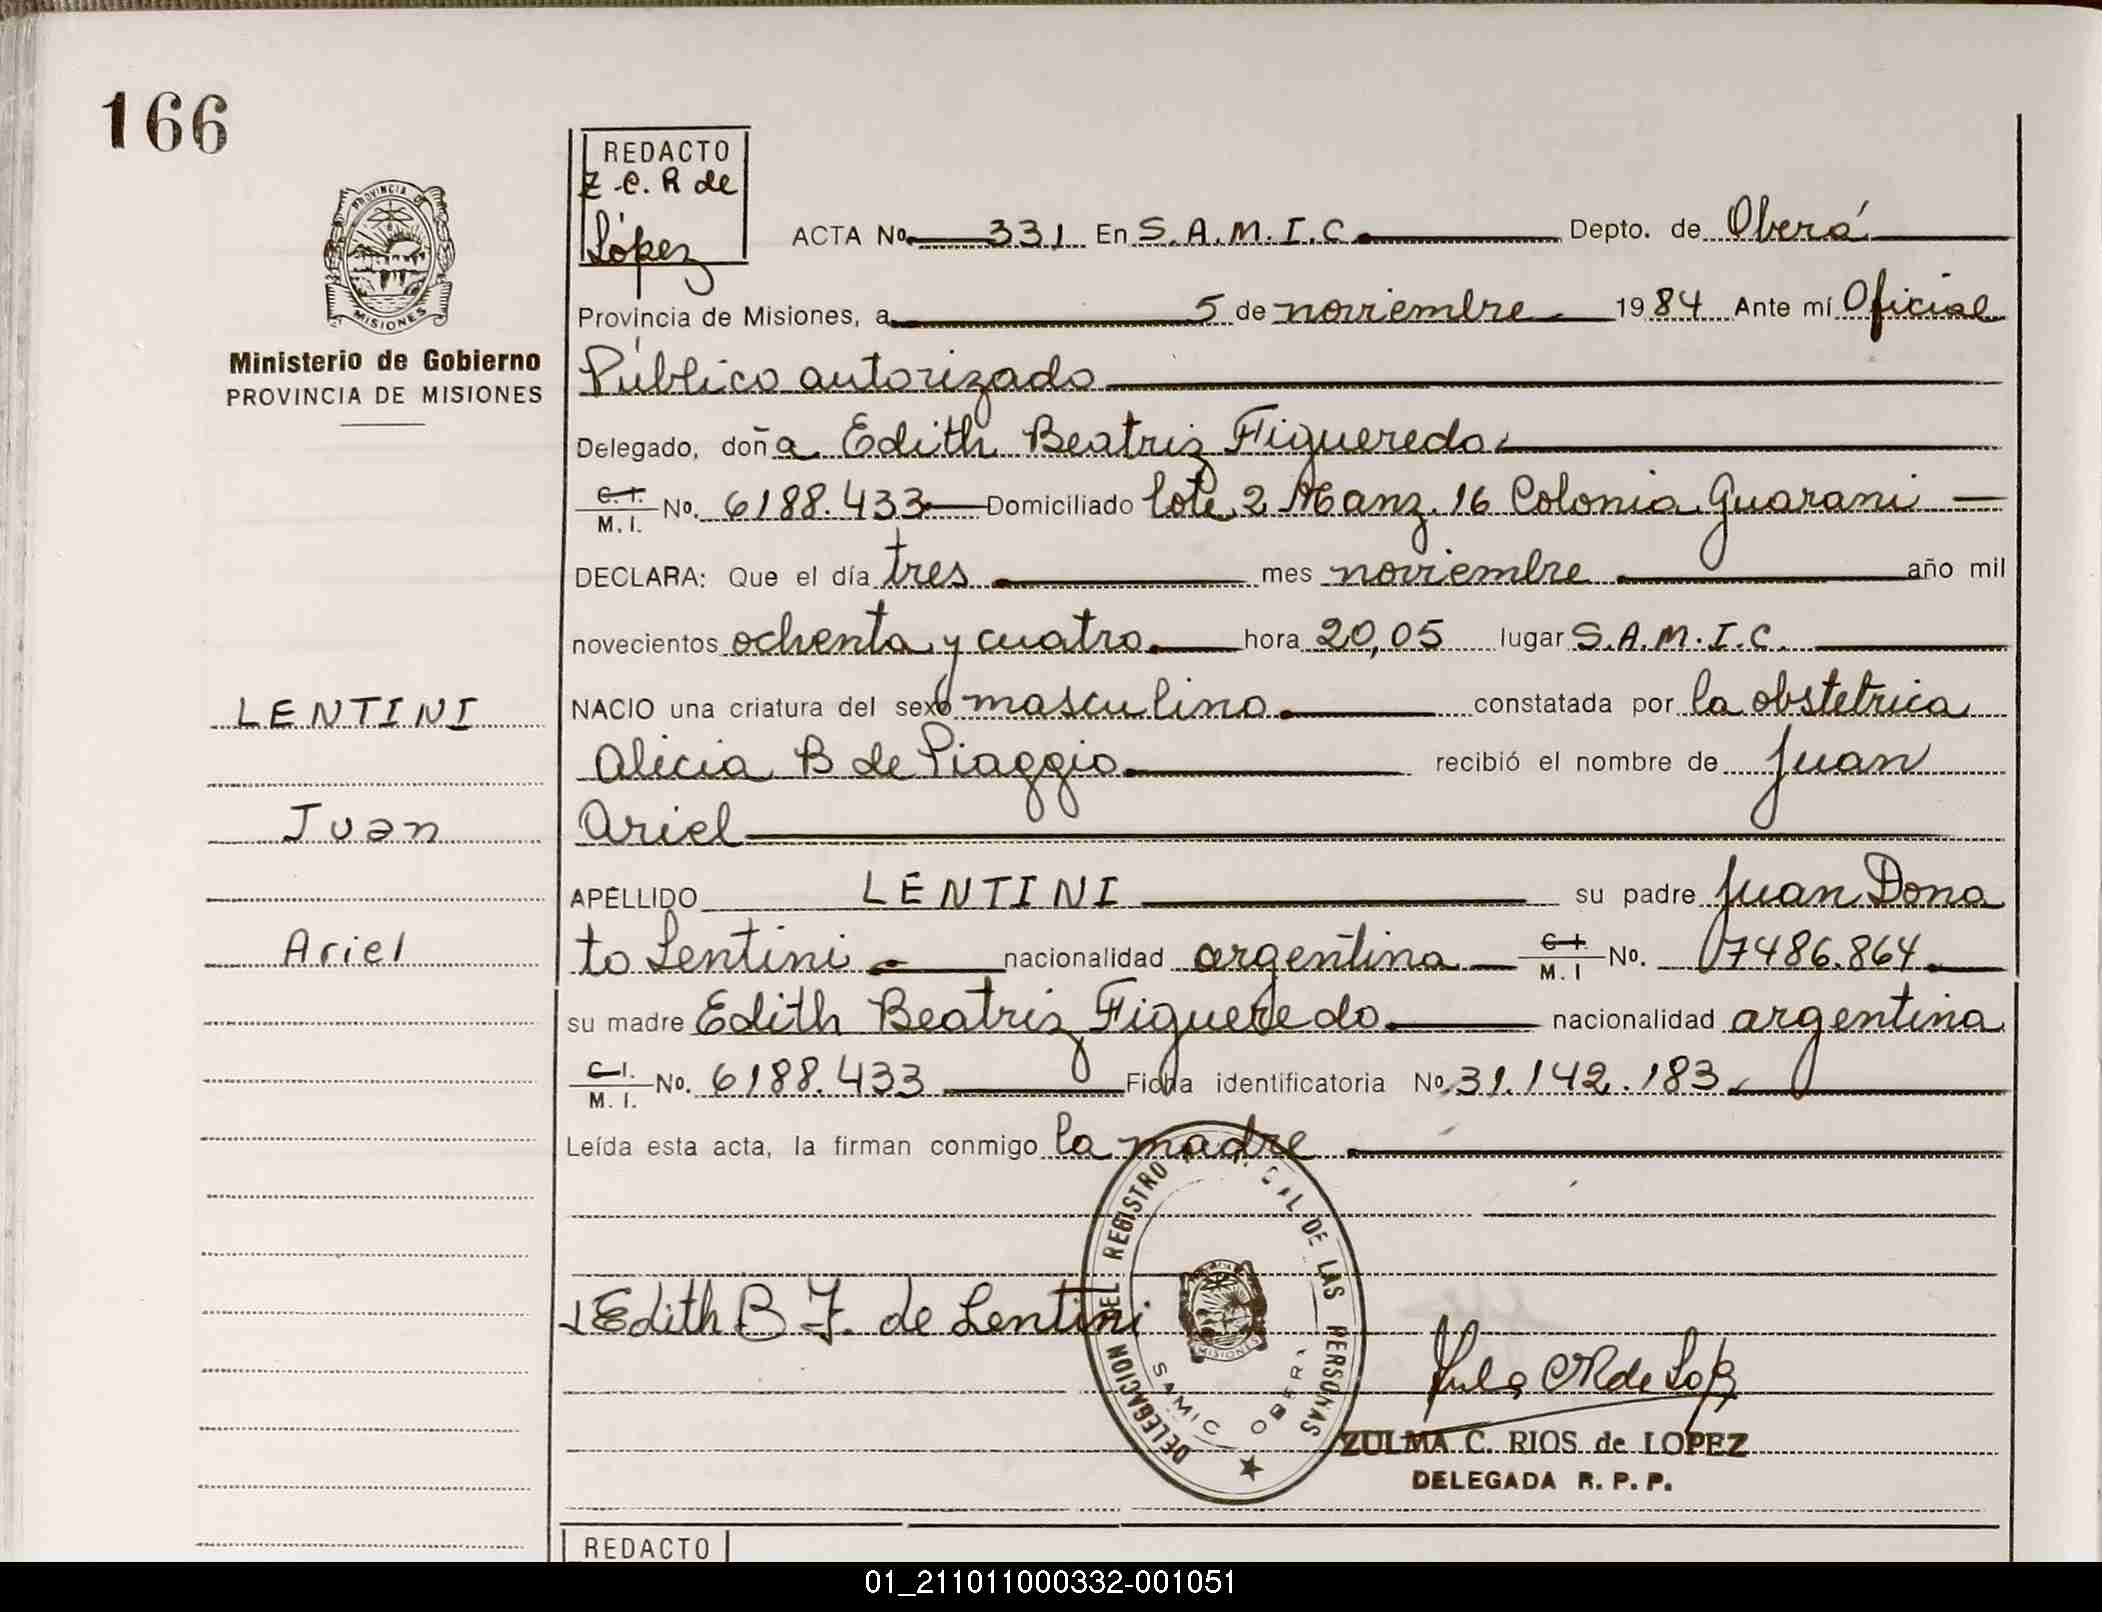 166
REDACTO
Z.C.R de
López
PROVINCIA DE
MISIONES
Ministerio de Gobierno
PROVINCIA DE MISIONES
ACTA No. 331 En S.A.M.I.C. Depto. de Oberá
Provincia de Misiones, a 5 de noviembre 1984 Ante mí Oficial
Público autorizado
Delegado, doña Edith Beatriz Figueredo
C.I. M.I. No. 6188.433 Domiciliado lote 2 Manz. 16 Colonia Guarani
DECLARA: Que el día tres mes noviembre año mil
novecientos ochenta y cuatro hora 20,05 lugar S.A.M.I.C.
LENTINI
NACIO una criatura del sexo masculino constatada por la obstetrica
Alicia B de Piaggio recibió el nombre de Juan
Juan
Ariel
APELLIDO LENTINI su padre Juan Dona
Ariel
to Lentini nacionalidad argentina C.I. M.I No. 07486.864
su madre Edith Beatriz Figueredo nacionalidad argentina
C.I. M.I. No. 6188.433 Ficha identificatoria No 31.142.183
Leída esta acta, la firman conmigo la madre
Edith B F. de Lentini
DELEGACION DEL REGISTRO DE LAS PERSONAS
MISIONES
SAMIC OBERA
ZULMA C. RIOS de LOPEZ
DELEGADA R. P. P.
REDACTO
01_211011000332-001051